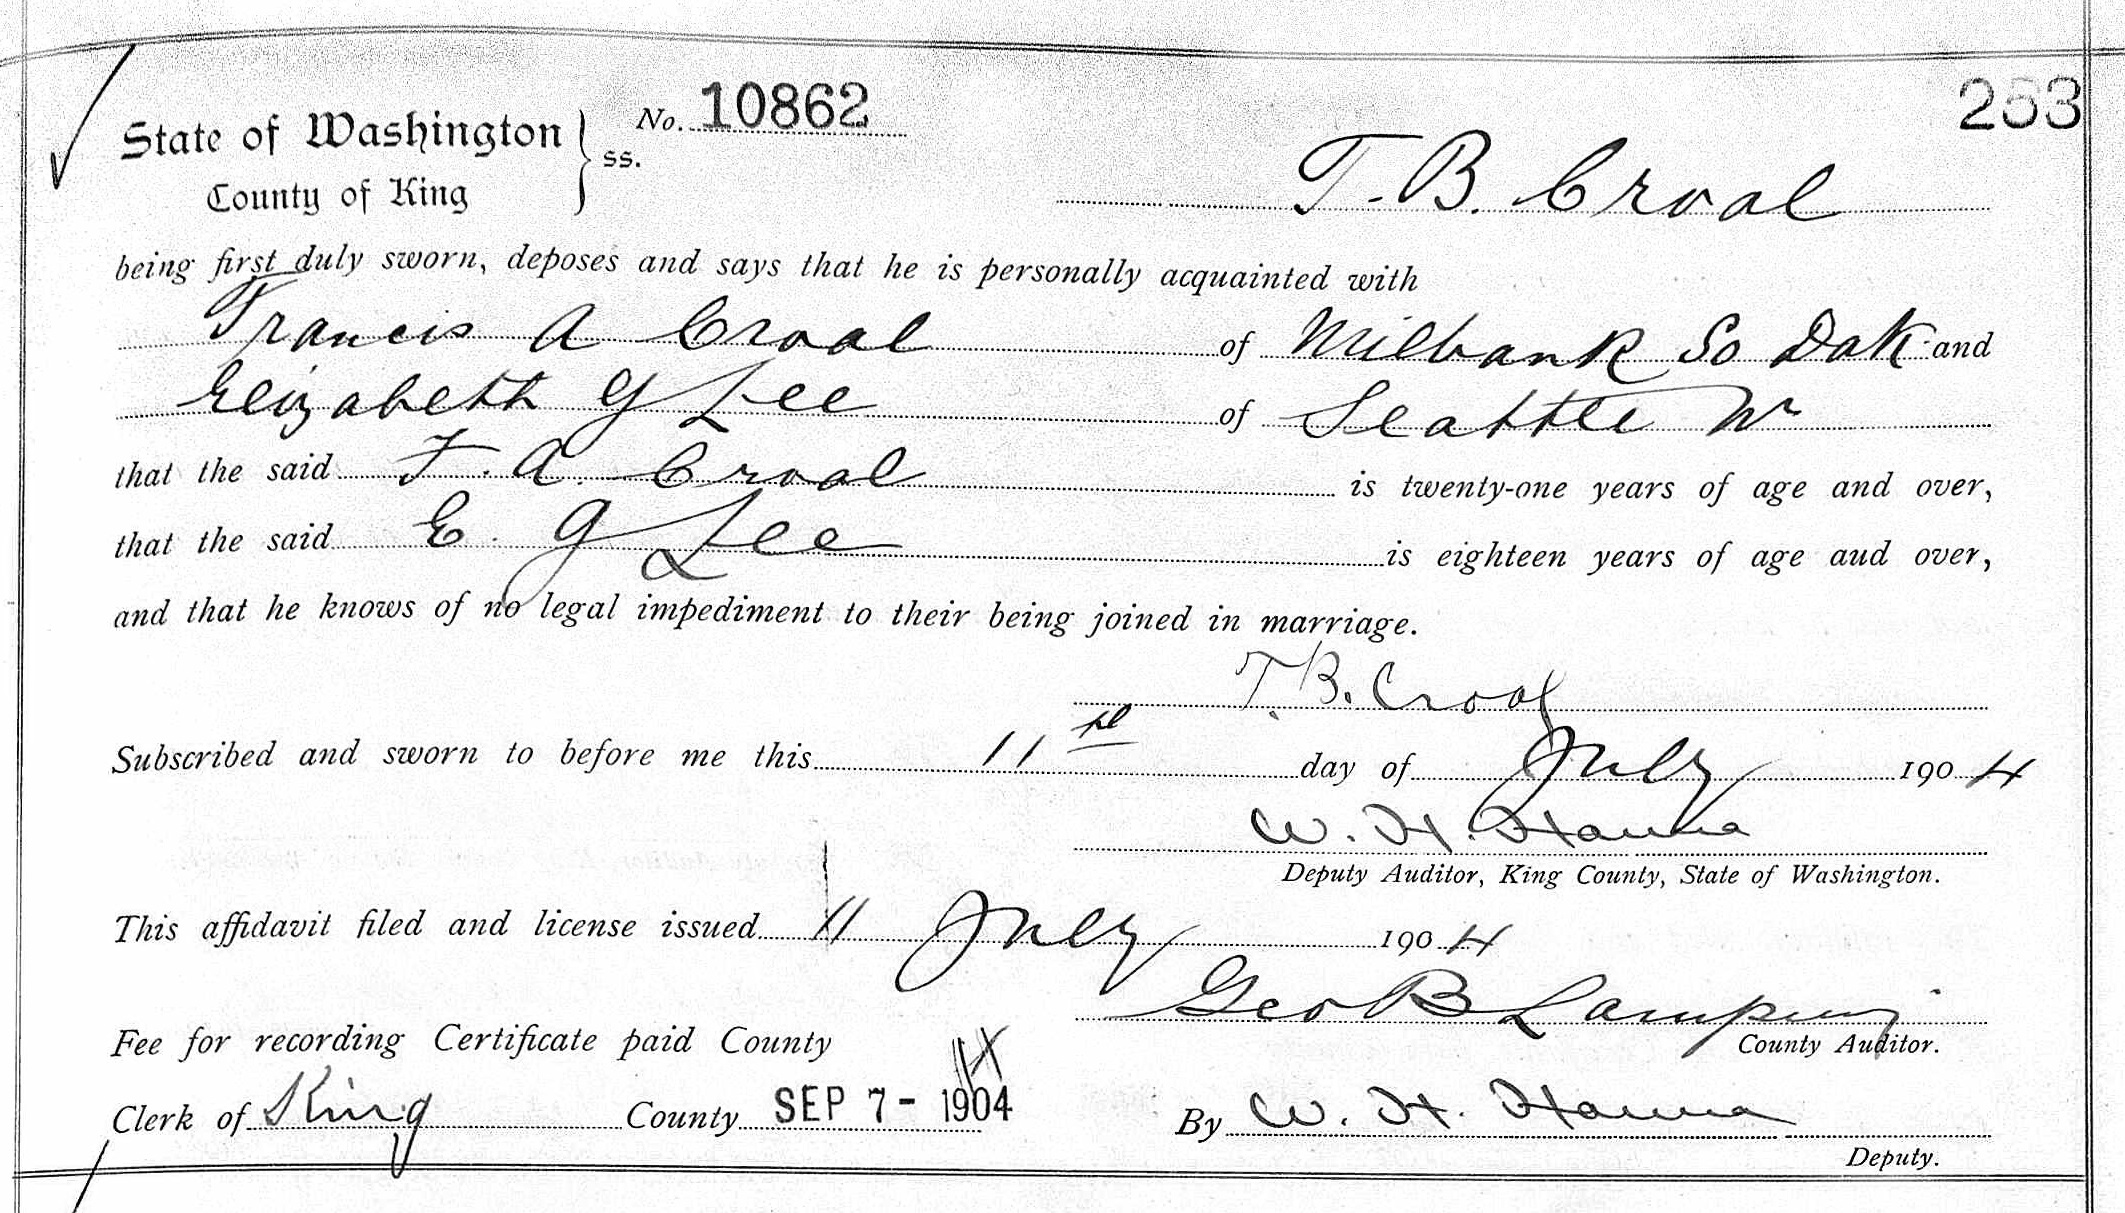 253
State of Washington } ss. No. 10862
County of King
T. B. Croal
being first duly sworn, deposes and says that he is personally acquainted with
Francis A Croal of Milbank So Dak and
Elizabeth G Lee of Seattle W
that the said F. A. Croal is twenty-one years of age and over,
that the said E. G Lee is eighteen years of age aud over,
and that he knows of no legal impediment to their being joined in marriage.
T. B. Croal
Subscribed and sworn to before me this 11 day of July 1904
W. H. Hanna
Deputy Auditor, King County, State of Washington.
This affidavit filed and license issued 11 July 1904
Geo B Lamping
County Auditor.
Fee for recording Certificate paid County
Clerk of King County SEP 7 - 1904
By W. H. Hanna
Deputy.